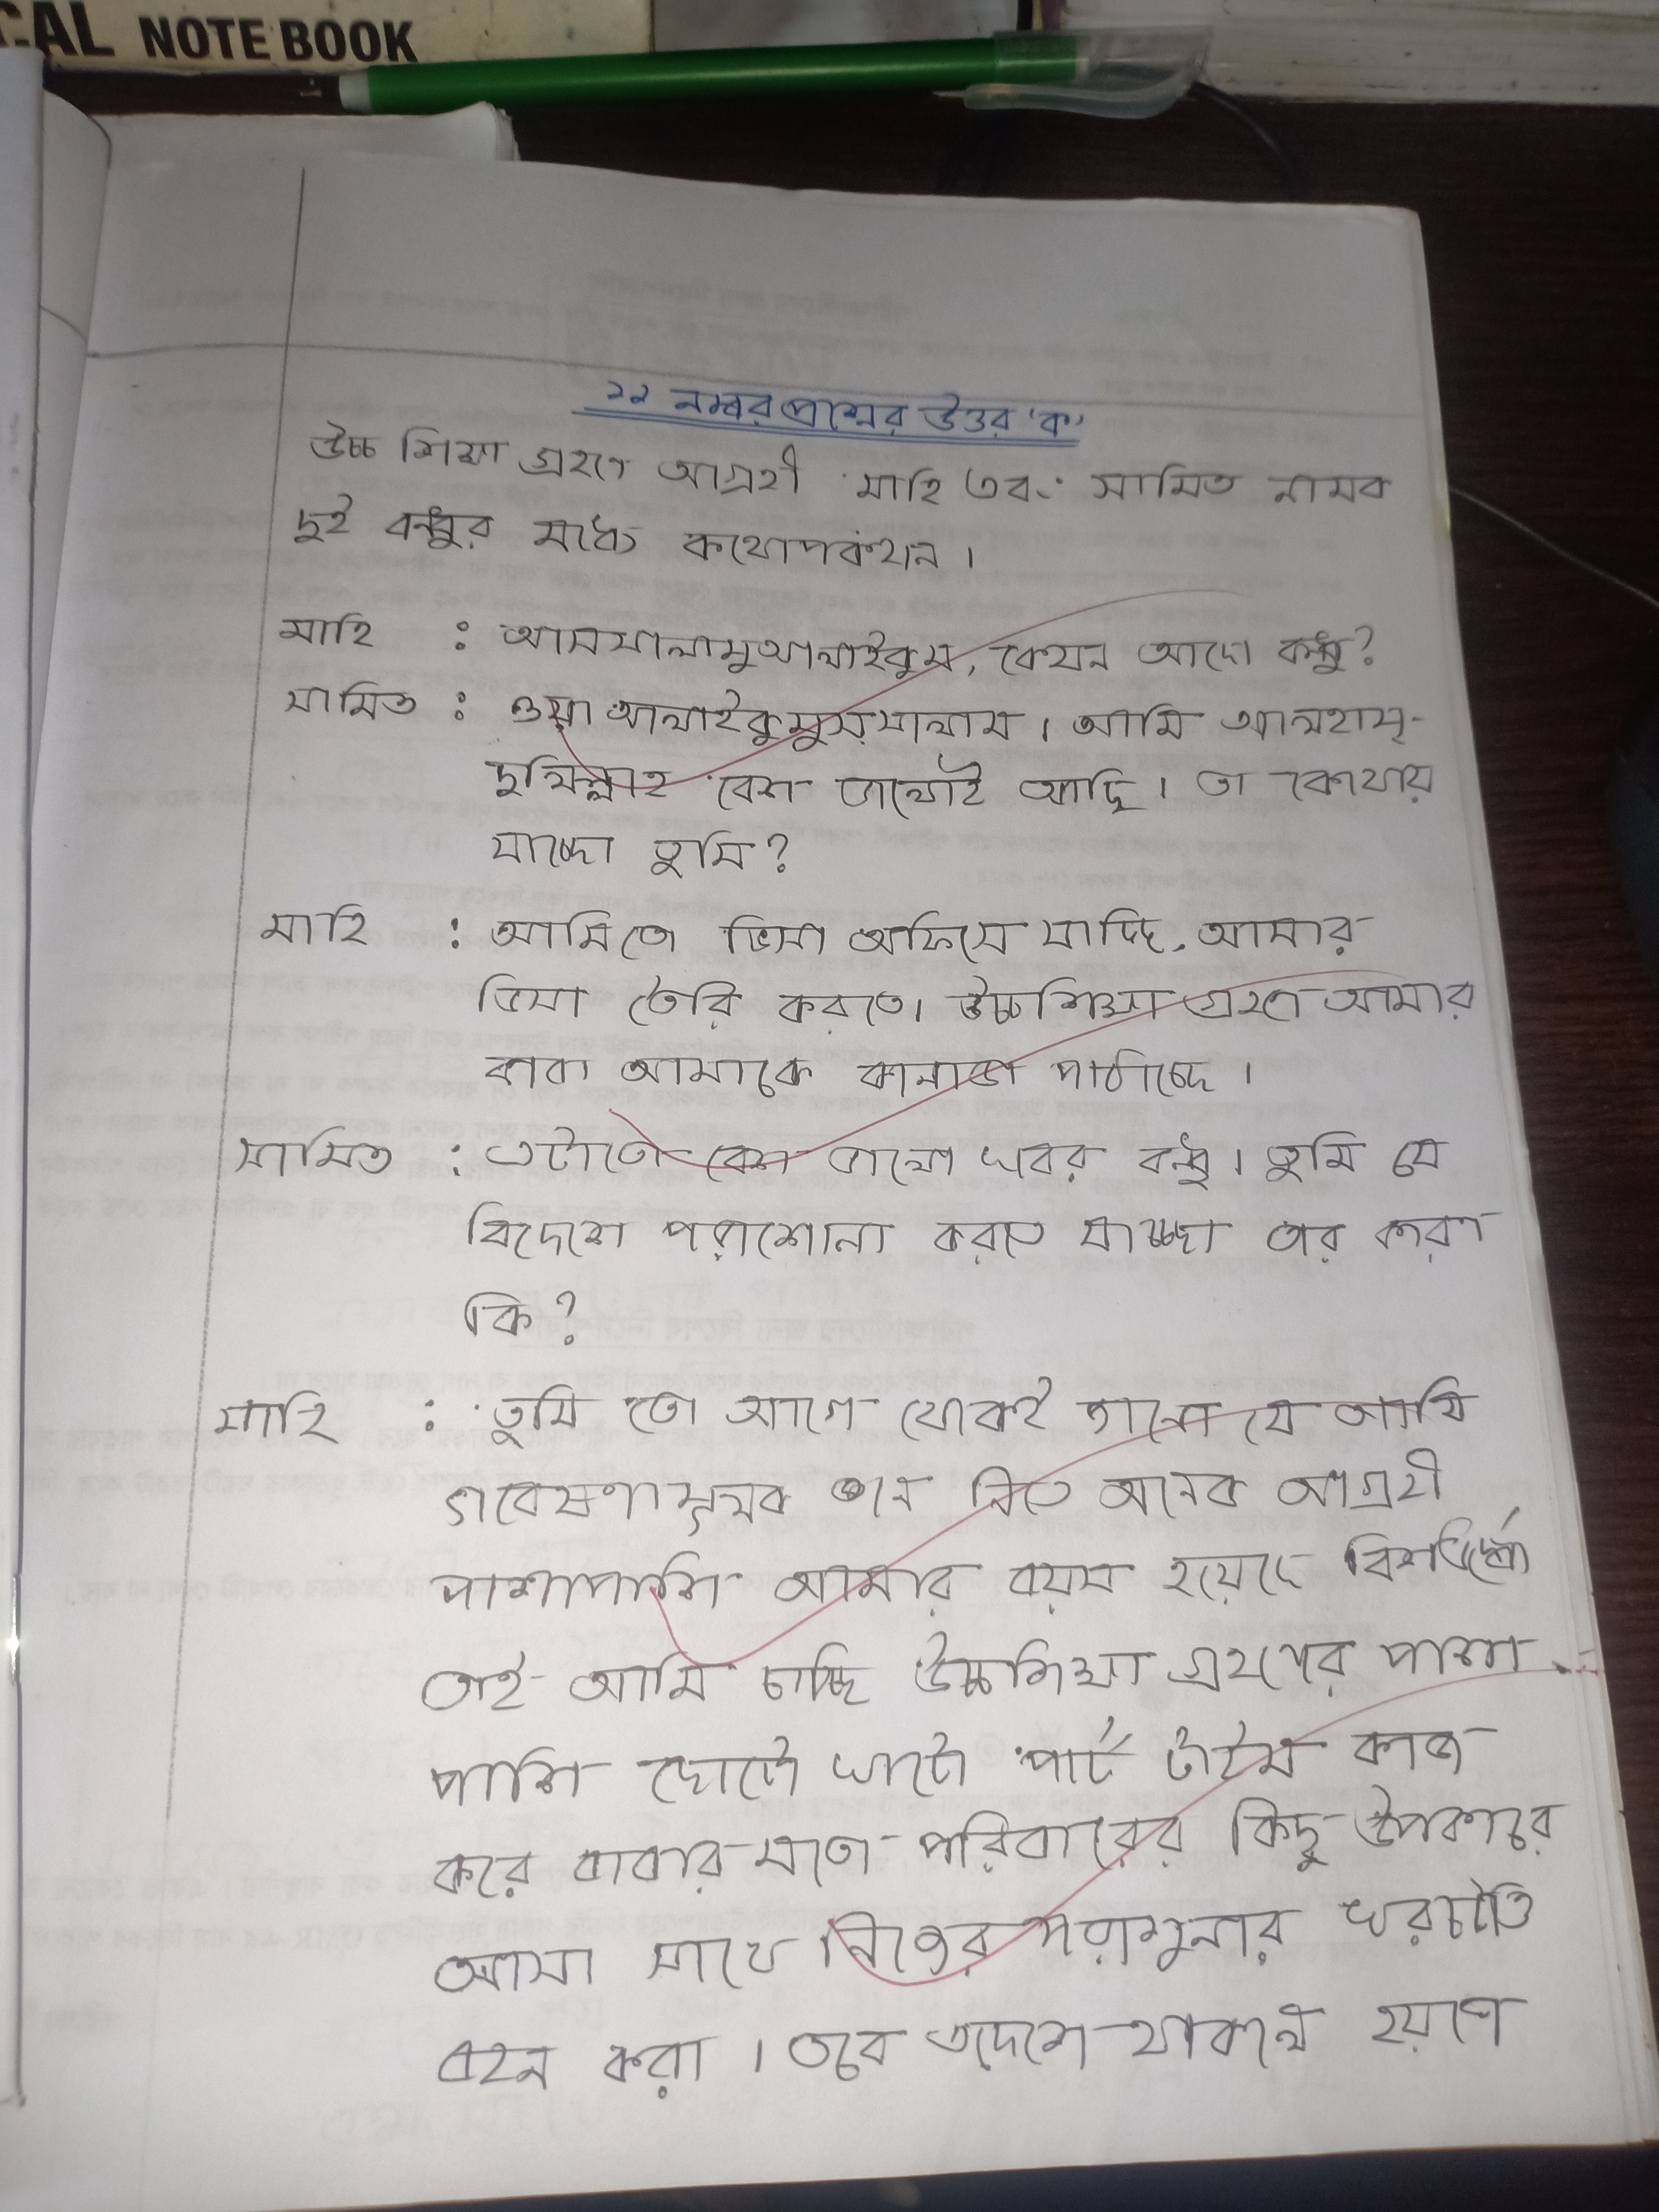 CAL NOTE BOOK
১১ নম্বর প্রশ্নের উত্তর 'ক'
উচ্চ শিক্ষা গ্রহণে আগ্রহী মাহি এবং সামিত নামক
দুই বন্ধুর মধ্যে কথোপকথন।
মাহি : আসসালামুআলাইকুম, কেমন আছো বন্ধু?
সামিত : ওয়া আলাইকুমুস্সালাম। আমি আলহাম্-
দুলিল্লাহ বেশ ভালোই আছি। তা কোথায়
যাচ্ছো তুমি?
মাহি : আমিতো ভিসা অফিসে যাচ্ছি, আমার
ভিসা তৈরি করতে। উচ্চশিক্ষা গ্রহণে আমার
বাবা আমাকে কানাডা পাঠাচ্ছে।
সামিত : এটাতো বেশ ভালো খবর বন্ধু। তুমি যে
বিদেশে পড়াশোনা করতে যাচ্ছো তার কারণ
কি?
মাহি : তুমি তো আগে থেকেই জানো যে আমি
গবেষণামূলক জ্ঞান নিতে অনেক আগ্রহী
পাশাপাশি আমার বয়স হয়েছে
তাই আমি চাচ্ছি উচ্চশিক্ষা গ্রহণের পাশা-
পাশি ছোটো খাটো পার্ট টাইম কাজ
করে বাবার মতো পরিবারের কিছু উপকারে
আসা সাথে নিজের পড়াশুনার খরচটাও
বহন করা। তবে এদেশে থাকলে হয়তো